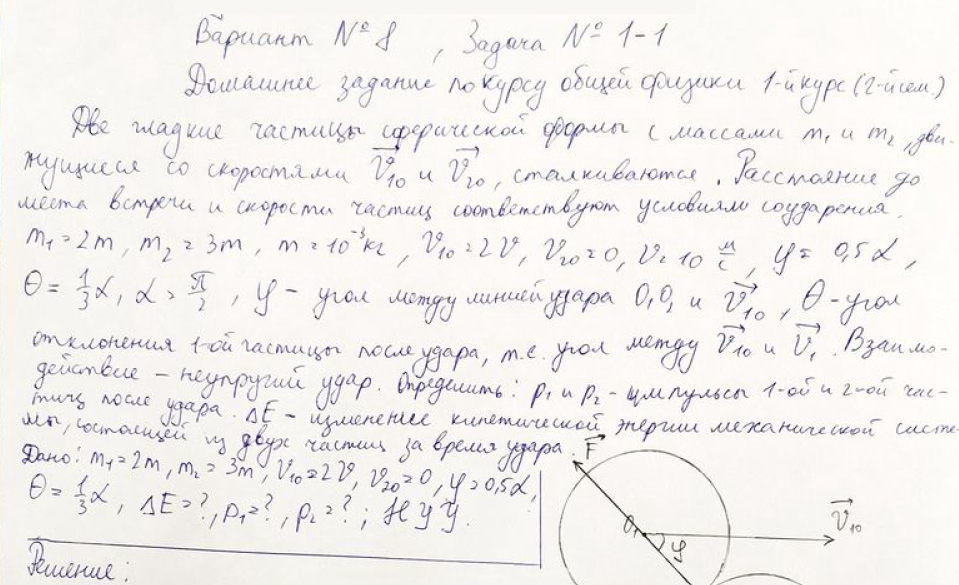 Вариант № 8, Задача № 1-1
Домашнее задание по курсу общей физики 1-й курс (2-й сем.)
Две гладкие частицы сферической формы с массами m₁ и m₂, дви-
жущиеся со скоростями v⃗₁₀ и v⃗₂₀, сталкиваются. Расстояние до
места встречи и скорости частиц соответствуют условиям соударения.
m₁ = 2m, m₂ = 3m, m = 10⁻³ кг, v₁₀ = 2v, v₂₀ = 0, v = 10 м/с, φ = 0,5α,
θ = 1/3 α, α = π/2, φ – угол между линией удара O₁O₂ и v⃗₁₀, θ – угол
отклонения 1-ой частицы после удара, т.е. угол между v⃗₁₀ и v⃗₁. Взаимо-
действие – неупругий удар. Определить: p₁ и p₂ – импульсы 1-ой и 2-ой час-
тиц после удара. ΔE – изменение кинетической энергии механической систе-
мы, состоящей из двух частиц за время удара.
Дано: m₁ = 2m, m₂ = 3m, v₁₀ = 2v, v₂₀ = 0, φ = 0,5α,
θ = 1/3 α, ΔE = ?, p₁ = ?, p₂ = ?; НУУ.
Решение:
F⃗
O₁
φ
v⃗₁₀